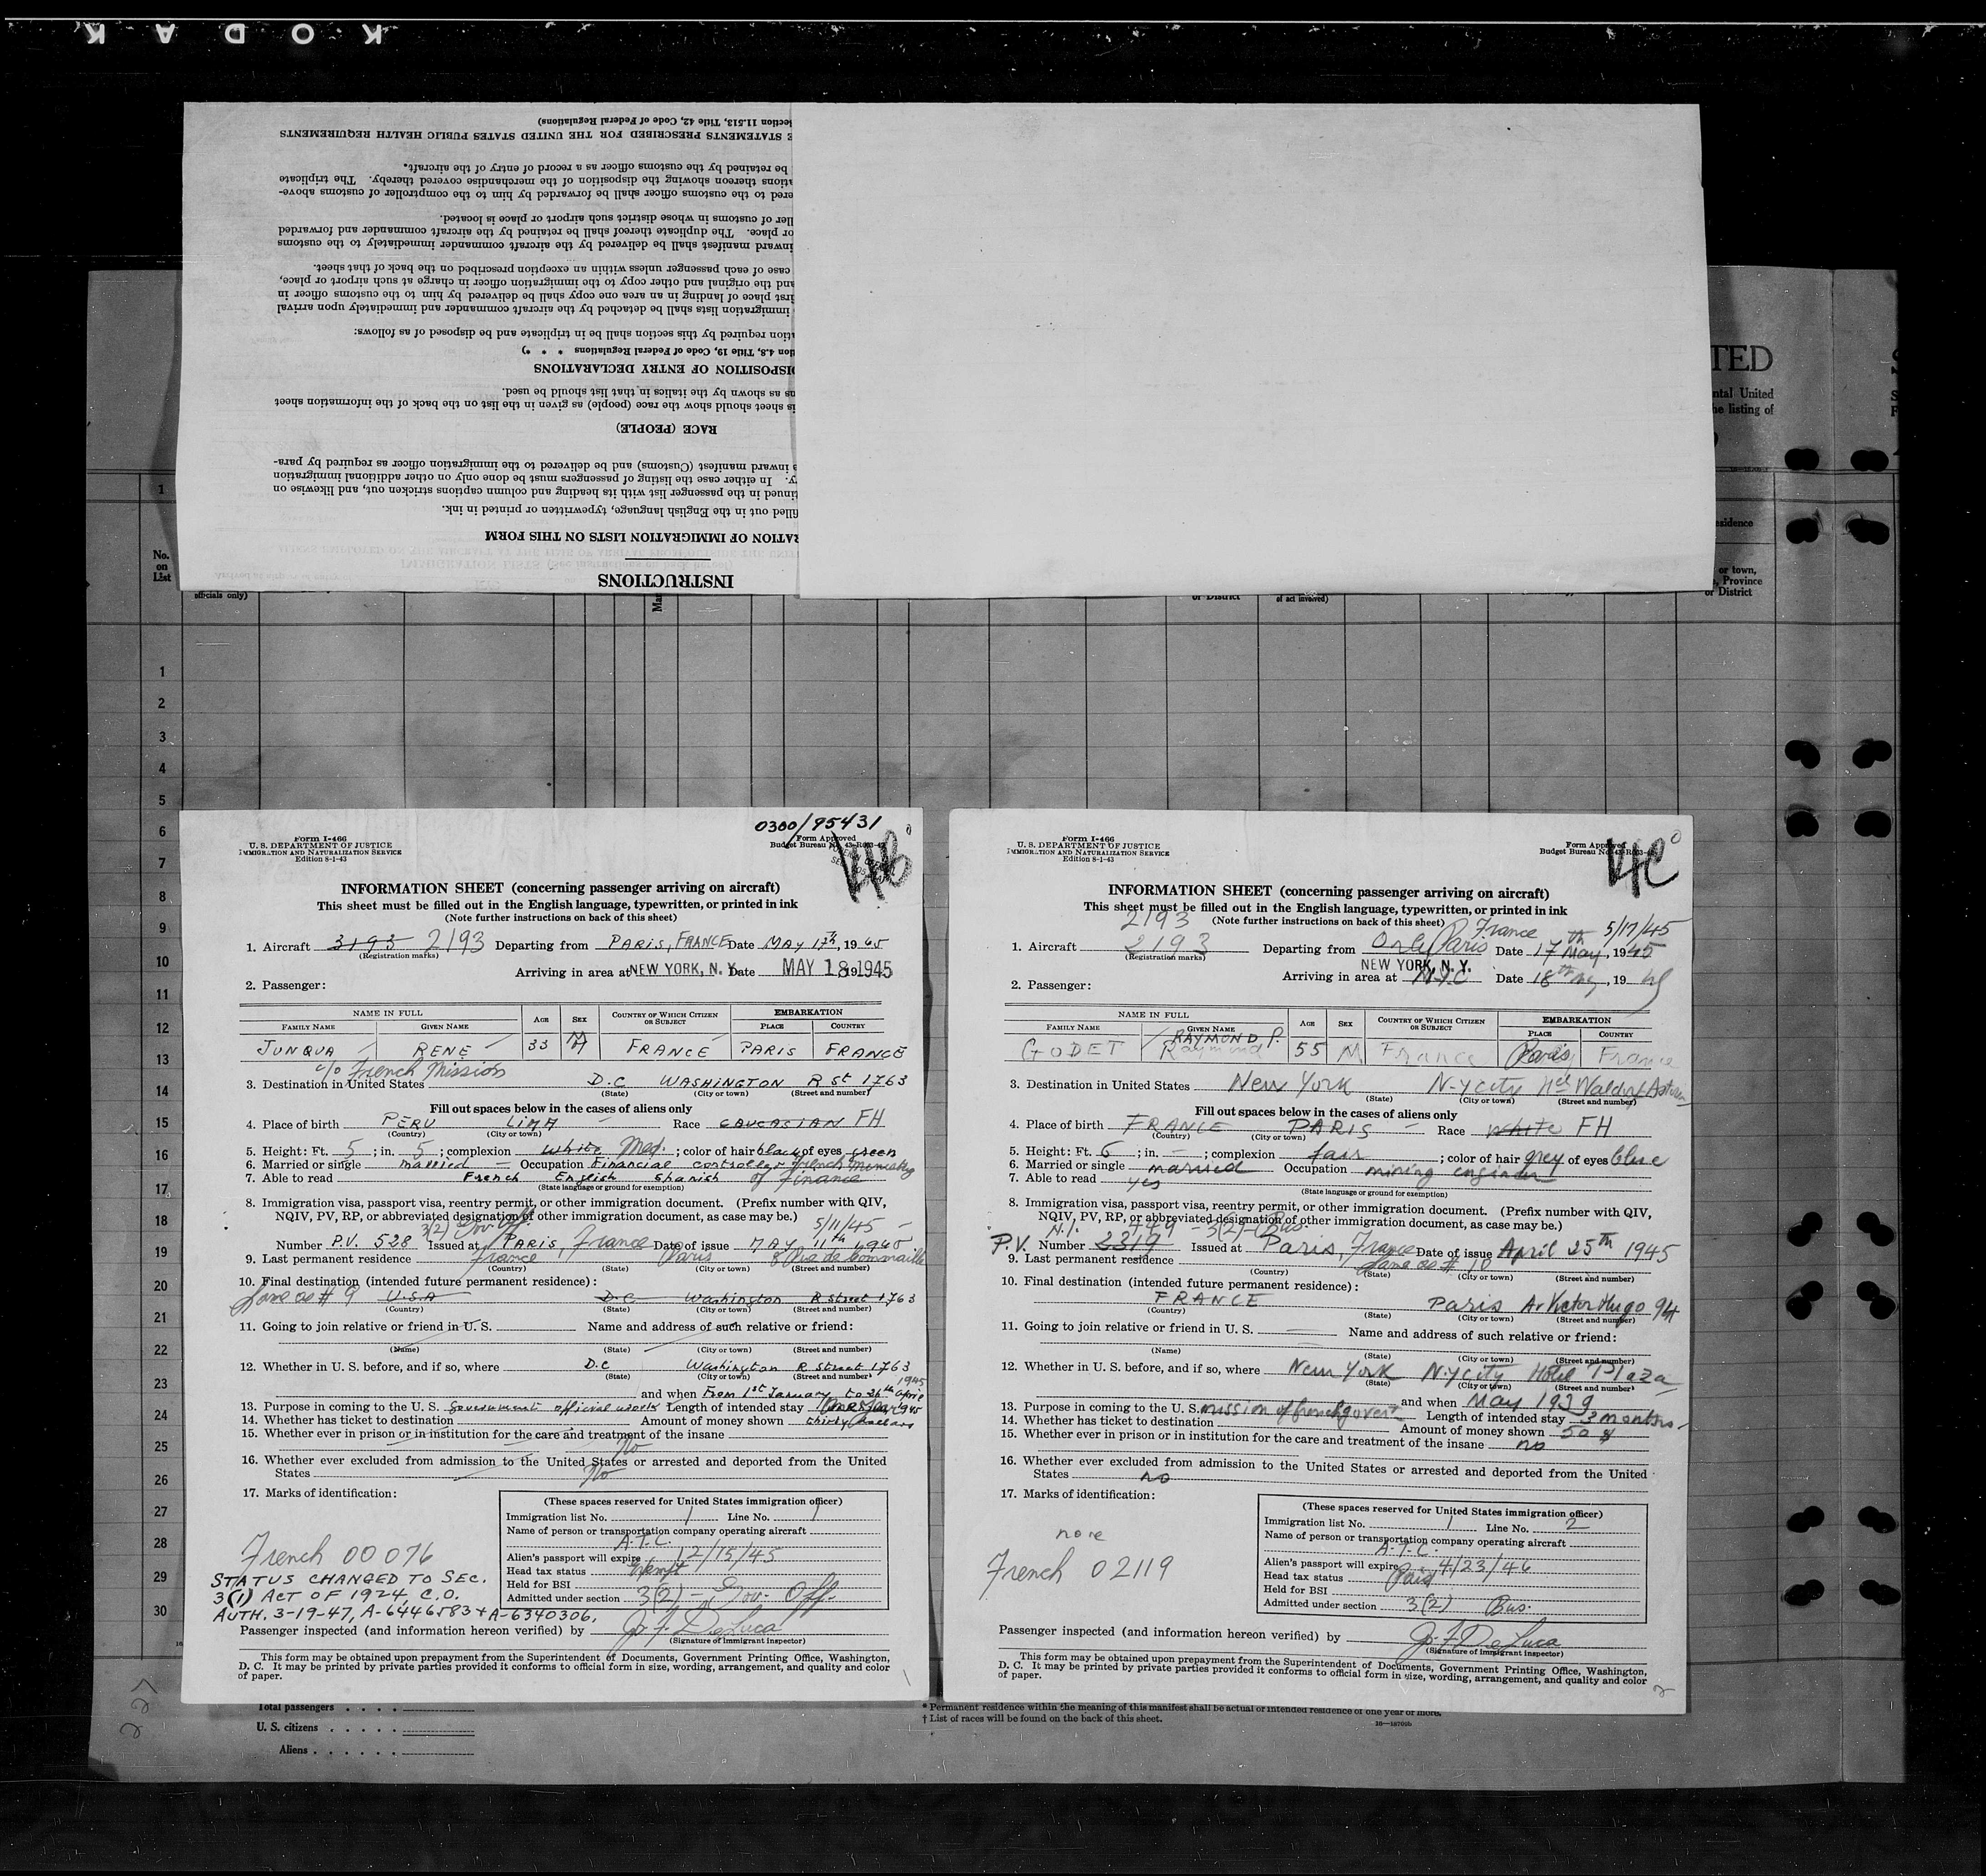 KODAK
INSTRUCTIONS
RATION OF IMMIGRATION LISTS ON THIS FORM
filled out in the English language, typewritten or printed in ink.
tinued in the passenger list with its heading and column captions stricken out, and likewise on
ry. In either case the listing of passengers must be done only on other additional immigration
e inward manifest (Customs) and be delivered to the immigration officer as required by para-
RACE (PEOPLE)
is sheet should show the race (people) as given in the list on the back of the information sheet
ns as shown by the italics in that list should be used.
DISPOSITION OF ENTRY DECLARATIONS
tion 4.8, Title 19, Code of Federal Regulations * * *)
ation required by this section shall be in triplicate and be disposed of as follows:
immigration lists shall be detached by the aircraft commander and immediately upon arrival
irst place of landing in an area one copy shall be delivered by him to the customs officer in
and the original and other copy to the immigration officer in charge at such airport or place,
case of each passenger unless within an exception prescribed on the back of that sheet.
inward manifest shall be delivered by the aircraft commander immediately to the customs
or place. The duplicate thereof shall be retained by the aircraft commander and forwarded
ller of customs in whose district such airport or place is located.
ered to the customs officer shall be forwarded by him to the comptroller of customs above-
ations thereon showing the disposition of the merchandise covered thereby. The triplicate
be retained by the customs officer as a record of entry of the aircraft.
E STATEMENTS PRESCRIBED FOR THE UNITED STATES PUBLIC HEALTH REQUIREMENTS
ection 11.513, Title 42, Code of Federal Regulations)
TED
ntal United
he listing of
No.
on
List
officials only)
or District
of act involved)
or town,
Province
or District
1
2
3
4
5
6
7
8
9
10
11
12
13
14
15
16
17
18
19
20
21
22
23
24
25
26
27
28
29
30
0300/95431
Form I-466
U. S. DEPARTMENT OF JUSTICE
IMMIGRATION AND NATURALIZATION SERVICE
Edition 8-1-43
Form Approved
Budget Bureau No. 43-R063-
INFORMATION SHEET (concerning passenger arriving on aircraft)
This sheet must be filled out in the English language, typewritten, or printed in ink
(Note further instructions on back of this sheet)
1. Aircraft 3193 2193 Departing from PARIS, FRANCE Date MAY 17th, 1945
(Registration marks)
Arriving in area at NEW YORK, N. Y. Date MAY 18 1945
2. Passenger:
NAME IN FULL AGE SEX COUNTRY OF WHICH CITIZEN OR SUBJECT EMBARKATION
FAMILY NAME GIVEN NAME PLACE COUNTRY
JUNQUA RENE 33 M FRANCE PARIS FRANCE
c/o French Mission
3. Destination in United States D.C WASHINGTON R St 1763
(State) (City or town) (Street and number)
Fill out spaces below in the cases of aliens only
4. Place of birth PERU LIMA Race CAUCASIAN FH
(Country) (City or town)
5. Height: Ft. 5; in. 5; complexion white Med.; color of hair black of eyes green
6. Married or single married Occupation Financial controller French Ministry
7. Able to read French English Spanish of Finance
(State language or ground for exemption)
8. Immigration visa, passport visa, reentry permit, or other immigration document. (Prefix number with QIV,
NQIV, PV, RP, or abbreviated designation of other immigration document, as case may be.)
3(2) Gov. Off. 5/11/45
Number P.V. 528 Issued at PARIS, France Date of issue MAY 11th 1945
9. Last permanent residence France Paris
(Country) (State) (City or town) (Street and number)
10. Final destination (intended future permanent residence):
Same as # 9 U.S.A D.C Washington R street 1763
(Country) (State) (City or town) (Street and number)
11. Going to join relative or friend in U. S. Name and address of such relative or friend:
(Name) (State) (City or town) (Street and number)
12. Whether in U. S. before, and if so, where D.C Washington R Street 1763
(State) (City or town) (Street and number)
and when From 1st January to 26th April 1945
13. Purpose in coming to the U. S. Government official work Length of intended stay One year
14. Whether has ticket to destination Amount of money shown thirty dollars
15. Whether ever in prison or in institution for the care and treatment of the insane No
16. Whether ever excluded from admission to the United States or arrested and deported from the United
States No
17. Marks of identification:
(These spaces reserved for United States immigration officer)
Immigration list No. 1 Line No. 1
Name of person or transportation company operating aircraft
A.T.C.
Alien's passport will expire 12/15/45
Head tax status Exempt
Held for BSI
Admitted under section 3(2) - Gov. Off.
French 00076
STATUS CHANGED TO SEC.
3(1) ACT OF 1924, C.O.
AUTH. 3-19-47, A-6446583 + A-6340306.
Passenger inspected (and information hereon verified) by J. F. DeLuca
(Signature of immigrant inspector)
This form may be obtained upon prepayment from the Superintendent of Documents, Government Printing Office, Washington,
D. C. It may be printed by private parties provided it conforms to official form in size, wording, arrangement, and quality and color
of paper.
Form I-466
U. S. DEPARTMENT OF JUSTICE
IMMIGRATION AND NATURALIZATION SERVICE
Edition 8-1-43
Form Approved
Budget Bureau No. 43-R063-
INFORMATION SHEET (concerning passenger arriving on aircraft)
This sheet must be filled out in the English language, typewritten, or printed in ink
2193 (Note further instructions on back of this sheet) France 5/17/45
1. Aircraft 2193 Departing from Orly Paris Date 17th May, 1945
(Registration marks)
NEW YORK, N. Y.
Arriving in area at N.Y.C Date 18th May, 1945
2. Passenger:
NAME IN FULL AGE SEX COUNTRY OF WHICH CITIZEN OR SUBJECT EMBARKATION
FAMILY NAME GIVEN NAME PLACE COUNTRY
RAYMOND P.
GODET Raymond 55 M France Paris France
3. Destination in United States New York N-Y city Hel Waldorf Astoria
(State) (City or town) (Street and number)
Fill out spaces below in the cases of aliens only
4. Place of birth FRANCE PARIS Race White FH
(Country) (City or town)
5. Height: Ft. 6; in. -; complexion fair; color of hair grey of eyes blue
6. Married or single married Occupation mining engineer
7. Able to read yes
(State language or ground for exemption)
8. Immigration visa, passport visa, reentry permit, or other immigration document. (Prefix number with QIV,
NQIV, PV, RP, or abbreviated designation of other immigration document, as case may be.)
N.I. 749 - 3(2)-Bus.
P.V. Number 2319 Issued at Paris, France Date of issue April 25th 1945
9. Last permanent residence Same as # 10
(Country) (State) (City or town) (Street and number)
10. Final destination (intended future permanent residence):
FRANCE Paris Av Victor Hugo 94
(Country) (State) (City or town) (Street and number)
11. Going to join relative or friend in U. S. Name and address of such relative or friend:
(Name) (State) (City or town) (Street and number)
12. Whether in U. S. before, and if so, where New York N-Y city Hotel Plaza
(State) (City or town) (Street and number)
and when May 1939
13. Purpose in coming to the U. S. mission of french govert Length of intended stay 3 months
14. Whether has ticket to destination Amount of money shown 50 $
15. Whether ever in prison or in institution for the care and treatment of the insane no
16. Whether ever excluded from admission to the United States or arrested and deported from the United
States no
17. Marks of identification:
none
French 02119
(These spaces reserved for United States immigration officer)
Immigration list No. 1 Line No. 2
Name of person or transportation company operating aircraft
A.T.C.
Alien's passport will expire 4/23/46
Head tax status Paid
Held for BSI
Admitted under section 3(2) Bus.
Passenger inspected (and information hereon verified) by J. F. DeLuca
(Signature of immigrant inspector)
This form may be obtained upon prepayment from the Superintendent of Documents, Government Printing Office, Washington,
D. C. It may be printed by private parties provided it conforms to official form in size, wording, arrangement, and quality and color
of paper.
2
Total passengers . . . .
U. S. citizens . . . . .
Aliens . . . . . .
* Permanent residence within the meaning of this manifest shall be actual or intended residence of one year or more.
† List of races will be found on the back of this sheet.
227